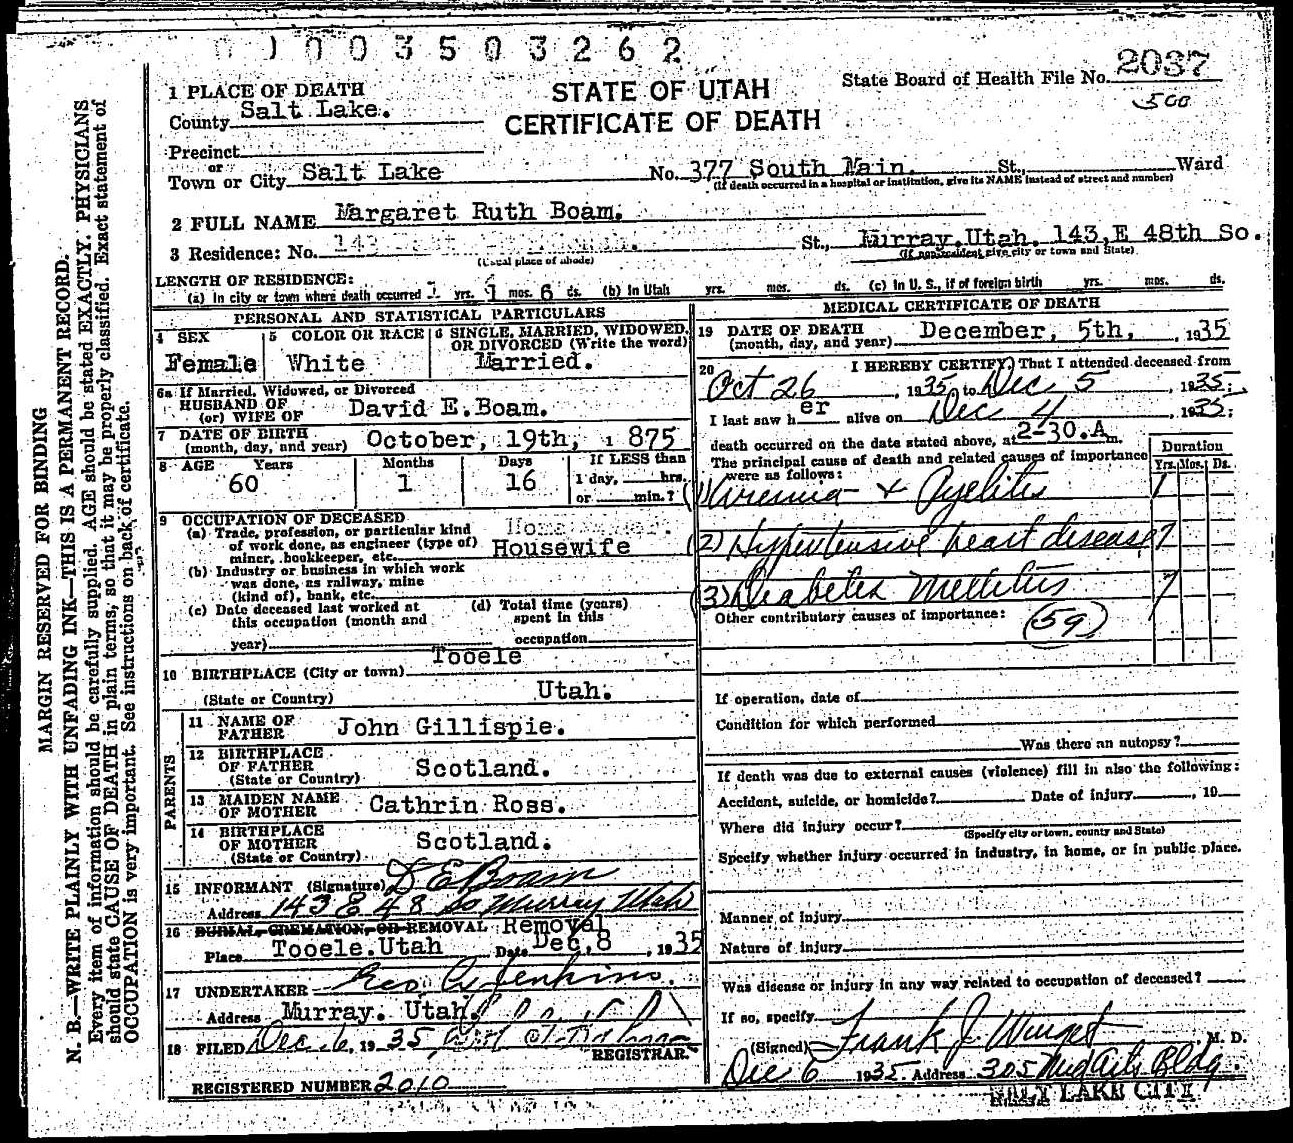 0100350 3262
MARGIN RESERVED FOR BINDING
N. B.—WRITE PLAINLY WITH UNFADING INK—THIS IS A PERMANENT RECORD.
Every item of information should be carefully supplied. AGE should be stated EXACTLY. PHYSICIANS
should state CAUSE OF DEATH in plain terms, so that it may be properly classified. Exact statement of
OCCUPATION is very important. See instructions on back of certificate.
STATE OF UTAH
CERTIFICATE OF DEATH
State Board of Health File No. 2037
500
1 PLACE OF DEATH
County Salt Lake.
Precinct
or
Town or City Salt Lake No. 377 South Main. St., Ward
(If death occurred in a hospital or institution, give its NAME instead of street and number)
2 FULL NAME Margaret Ruth Boam.
3 Residence: No. 143 St., Murray.Utah. 143,E 48th So.
(Usual place of abode) (If nonresident give city or town and State)
LENGTH OF RESIDENCE:
(a) In city or town where death occurred yrs. 1 mos. 6 ds. (b) In Utah yrs. mos. ds. (c) In U. S., if of foreign birth yrs. mos. ds.
PERSONAL AND STATISTICAL PARTICULARS
4 SEX Female
5 COLOR OR RACE White
6 SINGLE, MARRIED, WIDOWED, OR DIVORCED (Write the word) Married.
6a If Married, Widowed, or Divorced
HUSBAND OF
(or) WIFE OF David E.Boam.
7 DATE OF BIRTH
(month, day, and year) October, 19th, 1 875
8 AGE Years 60 Months 1 Days 16 If LESS than
1 day, hrs.
or min.?
9 OCCUPATION OF DECEASED
(a) Trade, profession, or particular kind
of work done, as engineer (type of)
miner, bookkeeper, etc. Housewife
(b) Industry or business in which work
was done, as railway, mine
(kind of), bank, etc.
(c) Date deceased last worked at
this occupation (month and
year)
(d) Total time (years)
spent in this
occupation
10 BIRTHPLACE (City or town) Tooele
(State or Country) Utah.
PARENTS
11 NAME OF
FATHER John Gillispie.
12 BIRTHPLACE
OF FATHER
(State or Country) Scotland.
13 MAIDEN NAME
OF MOTHER Cathrin Ross.
14 BIRTHPLACE
OF MOTHER
(State or Country) Scotland.
15 INFORMANT (Signature) D E Boam
Address 143 E 48 So Murray Utah
16 BURIAL, CREMATION, OR REMOVAL Removal
Place Tooele.Utah Date Dec,8 , 1935
17 UNDERTAKER Geo. Jenkins.
Address Murray. Utah.
18 FILED Dec. 6, 19 35
REGISTRAR.
REGISTERED NUMBER 2010
MEDICAL CERTIFICATE OF DEATH
19 DATE OF DEATH
(month, day, and year) December, 5th, , 1935
20 I HEREBY CERTIFY, That I attended deceased from
Oct 26 , 1935 to Dec 5 , 1935;
I last saw her alive on Dec 4 , 1935;
death occurred on the date stated above, at 2-30.A m.
The principal cause of death and related causes of importance
were as follows:
Duration
Yrs. Mos. Ds.
(1) Uremia + Pyelitis 1
(2) Hypertensive heart disease 7
(3) Diabetes Mellitus 7
Other contributory causes of importance:
(59)
If operation, date of
Condition for which performed
Was there an autopsy?
If death was due to external causes (violence) fill in also the following:
Accident, suicide, or homicide? Date of injury , 19
Where did injury occur?
(Specify city or town, county and State)
Specify whether injury occurred in industry, in home, or in public place.
Manner of injury
Nature of injury
Was disease or injury in any way related to occupation of deceased?
If so, specify
(Signed) Frank J. Winget , M. D.
Dec 6 1935 Address 305 Med Arts Bldg.
SALT LAKE CITY